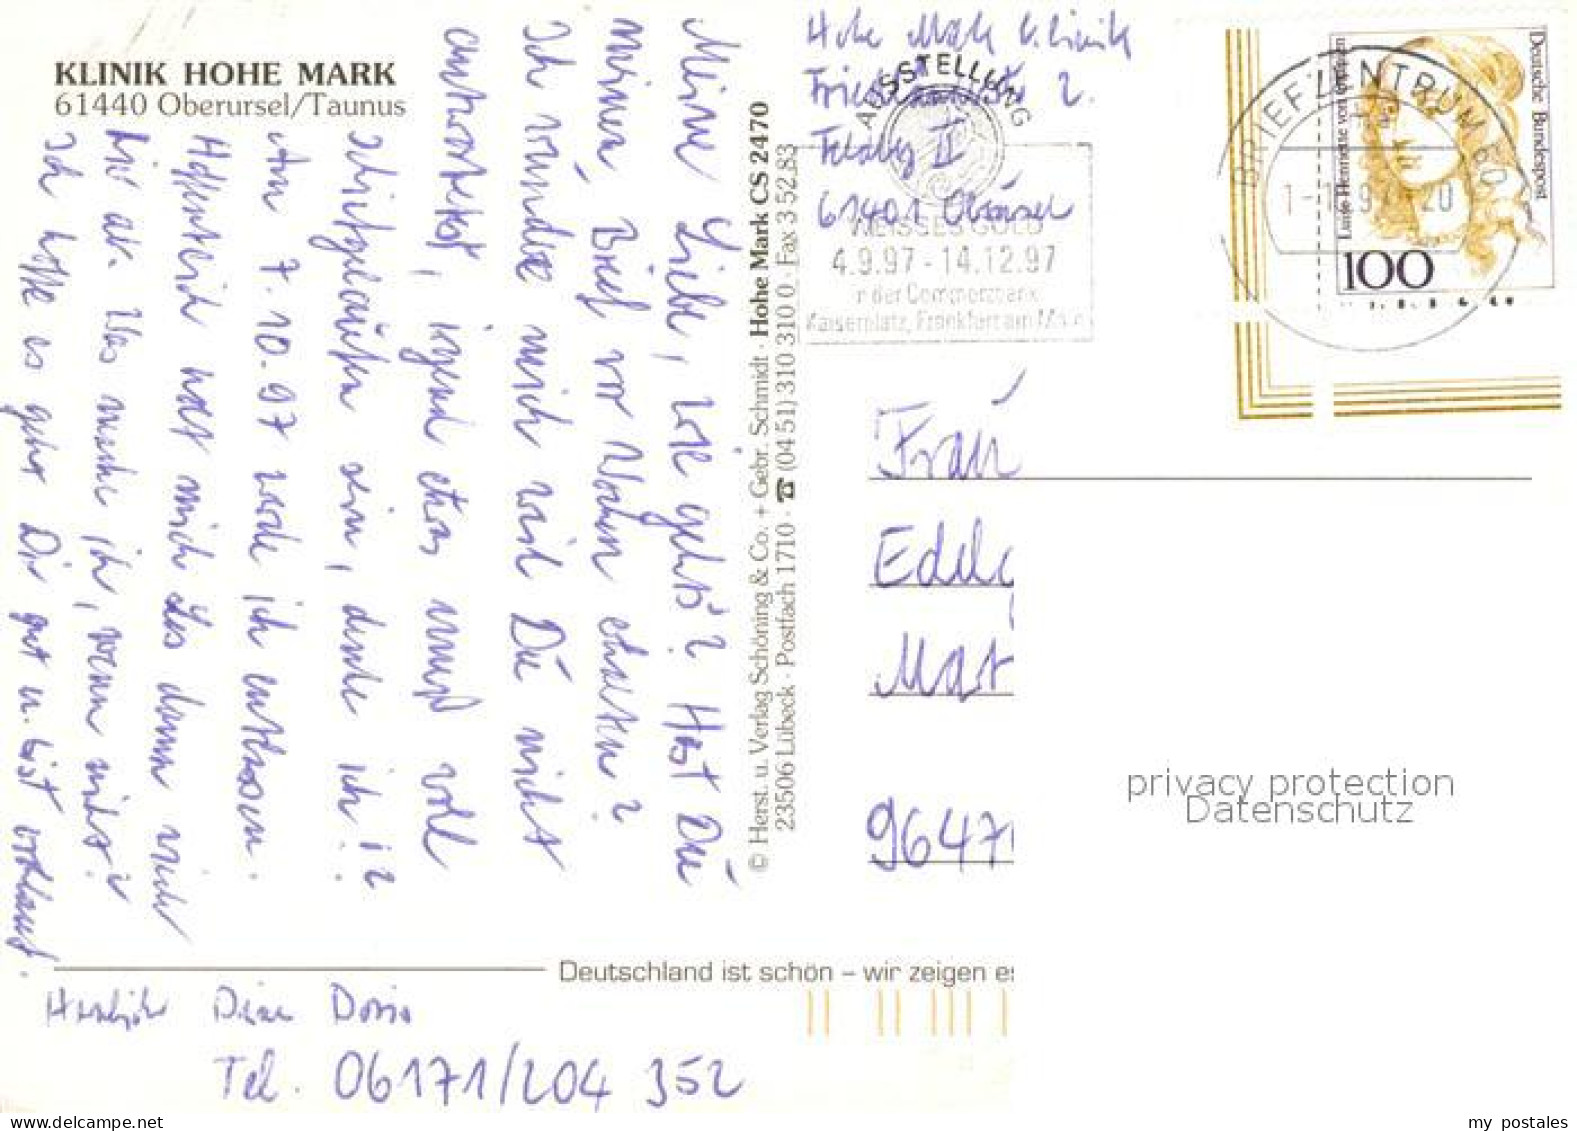 KLINIK HOHE MARK
61440 Oberursel/Taunus
Meine Liebe, wie geht's? Hast Du
meinen Brief vor Wochen erhalten?
Ich wundre mich weil Du nicht
antwortest, irgend etwas muß wohl
schiefgelaufen sein, denke ich!?
Am 7.10.97 werde ich entlassen.
Hoffentlich holt mich dann nicht
ab. Was mache ich, wenn nicht?
Ich hoffe es geht Dir gut u. bist wohlauf.
Herzlichst Deine Doris
Tel. 06171/204 352
© Herst. u. Verlag Schöning & Co. + Gebr. Schmidt · Hohe Mark CS 2470
23506 Lübeck · Postfach 1710 · ☎ (04 51) 310 310 0 · Fax 3 52 83
Deutschland ist schön – wir zeigen es
Hohe Mark Klinik
2.
II
61401 Oberursel
AUSSTELLUNG
WEISSES GOLD
4.9.97 - 14.12.97
in der Commerzbank
Kaiserplatz, Frankfurt am Main
BRIEFZENTRUM 60
20
Deutsche Bundespost
Luise Henriette von Oranien
100
Frau
Edel
Mar
9647
privacy protection
Datenschutz
my postales